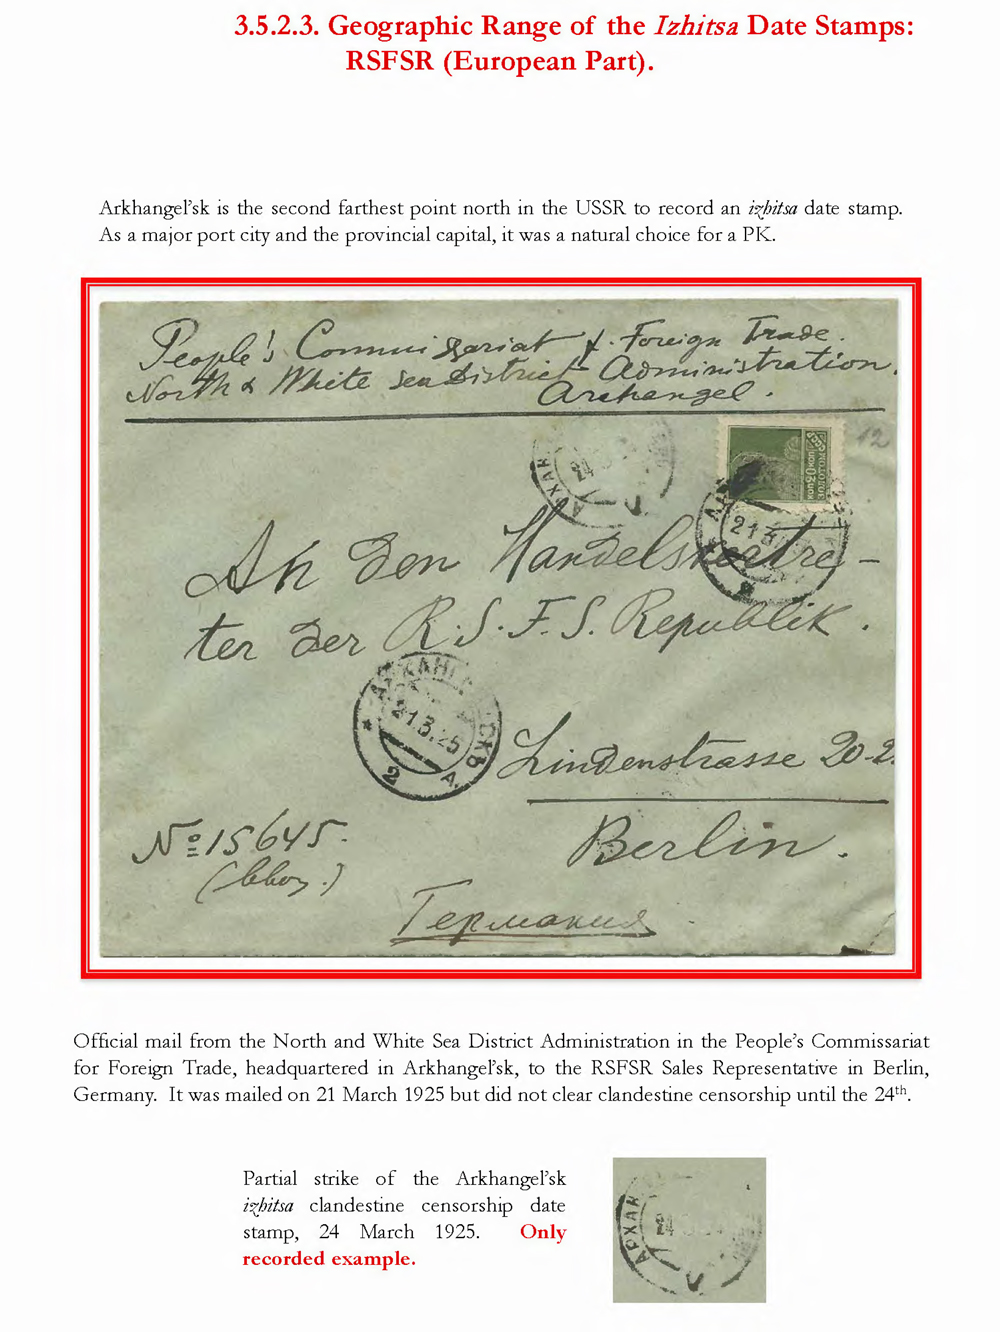 3.5.2.3. Geographic Range of the Izhitsa Date Stamps:
RSFSR (European Part).
Arkhangel’sk is the second farthest point north in the USSR to record an izhitsa date stamp.
As a major port city and the provincial capital, it was a natural choice for a PK.
People's Commissariat f. Foreign Trade.
North & White Sea District Administration.
Archangel.
12
АРХАН
24
КОП 20 КОП
ЗОЛОТОМ
21 3
An den Handelsvertre-
ter der R.S.F.S. Republik.
АРХАНГ СКЪ
21.3.25
2 А.
Lindenstrasse 20-2
Berlin.
№ 15645.
Германия
Official mail from the North and White Sea District Administration in the People’s Commissariat
for Foreign Trade, headquartered in Arkhangel’sk, to the RSFSR Sales Representative in Berlin,
Germany. It was mailed on 21 March 1925 but did not clear clandestine censorship until the 24th.
Partial strike of the Arkhangel’sk
izhitsa clandestine censorship date
stamp, 24 March 1925. Only
recorded example.
АРХАН
24
V